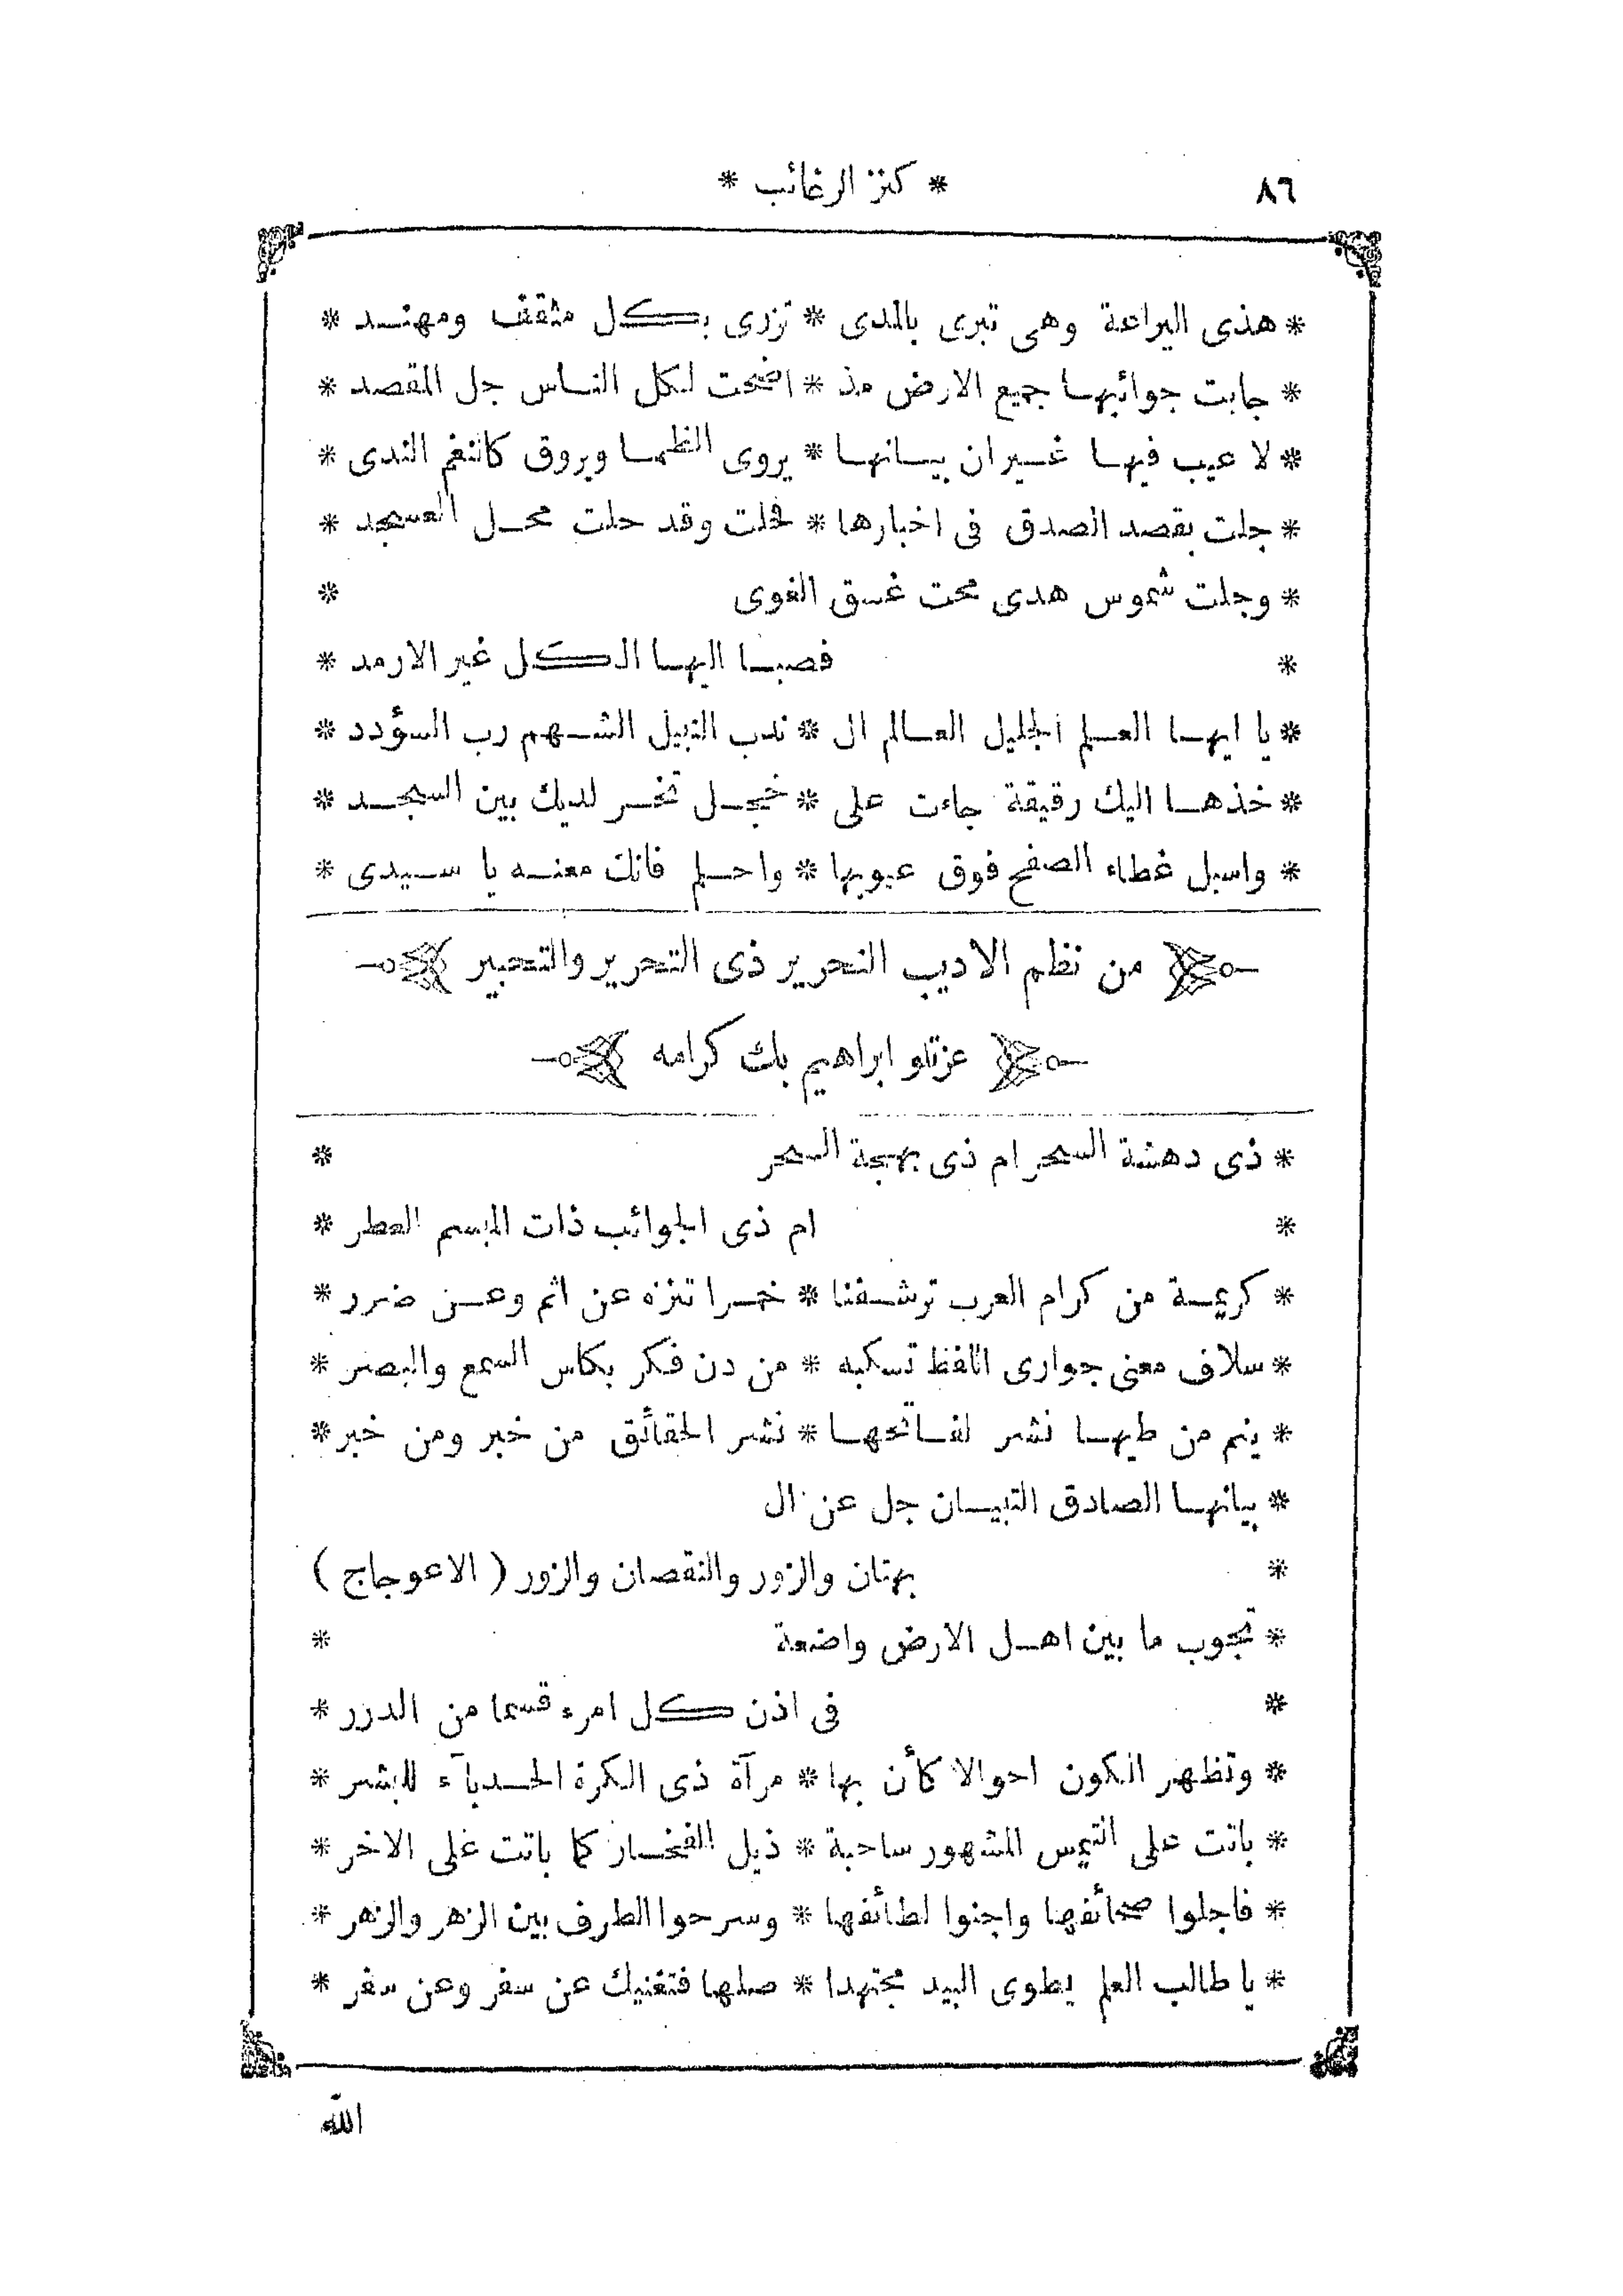 ٨٦
* كنز الرغائب *
* هذى اليراعة وهى تبرى بالمدى * تزرى بكل مثقف ومهند *
* جابت جوائبها جميع الارض مذ * اضحت لكل الناس جل المقصد *
* لا عيب فيها غير ان بيانها * يروى الظما ويروق كالنغم الندى *
* جلت بقصد الصدق فى اخبارها * فحلت وقد حلت محل العسجد *
* وجلت شموس هدى محت غسق الغوى *
* فصبا اليها الكل غير الارمد *
* يا ايها العلم الجليل العالم ال * ندب النبيل الشهم رب السؤدد *
* خذها اليك رقيقة جاءت على * خجل تخر لديك بين السجد *
* واسبل غطاء الصفح فوق عيوبها * واحلم فانك معنه يا سيدى *
من نظم الاديب النحرير ذى التحرير والتحبير
عزتلو ابراهيم بك كرامه
* ذى دهشة السحر ام ذى بهجة السحر *
* ام ذى الجوائب ذات المبسم العطر *
* كريمة من كرام العرب ترشفنا * خمرا تنزه عن اثم وعن ضرر *
* سلاف معنى جوارى اللفظ تسكبه * من دن فكر بكاس السمع والبصر *
* ينم من طيها نشر لفاتحها * نشر الحقائق من خبر ومن خبر *
* بيانها الصادق التبيان جل عن ال
* بهتان والزور والنقصان والزور ( الاعوجاج )
* تجوب ما بين اهل الارض واضعة *
* فى اذن كل امرء قسما من الدرر *
* وتظهر الكون احوالا كأن بها * مرآة ذى الكرة الحدبآء للبشر *
* باتت على التيمس المشهور ساحبة * ذيل الفخار كما باتت على الاخر *
* فاجلوا صحائفها واجنوا لطائفها * وسرحوا الطرف بين الزهر والزهر *
* يا طالب العلم يطوى البيد مجتهدا * صلها فتغنيك عن سفر وعن سفر *
الله